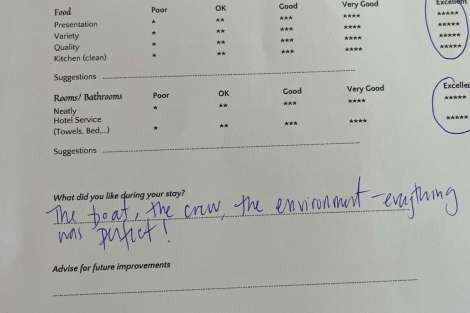 Food Poor OK Good Very Good Excellent
Presentation * ** *** **** *****
Variety * ** *** **** *****
Quality * ** *** **** *****
Kitchen (clean) * ** *** **** *****
Suggestions
Rooms/ Bathrooms Poor OK Good Very Good Excelle
Neatly * ** *** **** *****
Hotel Service
(Towels, Bed,..) * ** *** **** *****
Suggestions
What did you like during your stay?
The boat, the crew, the environment - everything
was perfect!
Advise for future improvements